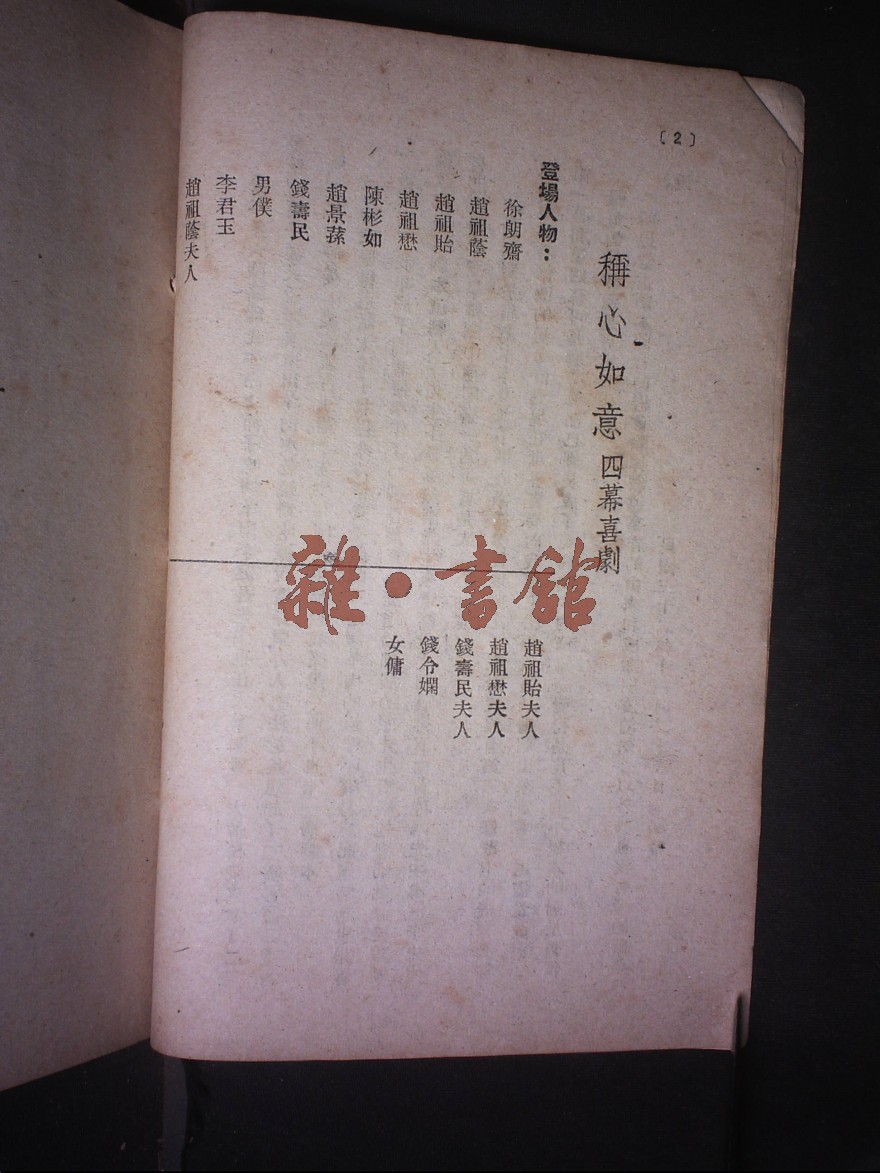 〔2〕
稱心如意 四幕喜劇
登場人物：
徐朗齋
趙祖蔭
趙祖貽
趙祖懋
陳彬如
趙景蓀
錢壽民
男僕
李君玉
趙祖蔭夫人
趙祖貽夫人
趙祖懋夫人
錢壽民夫人
錢令嫻
女傭
雜·書館